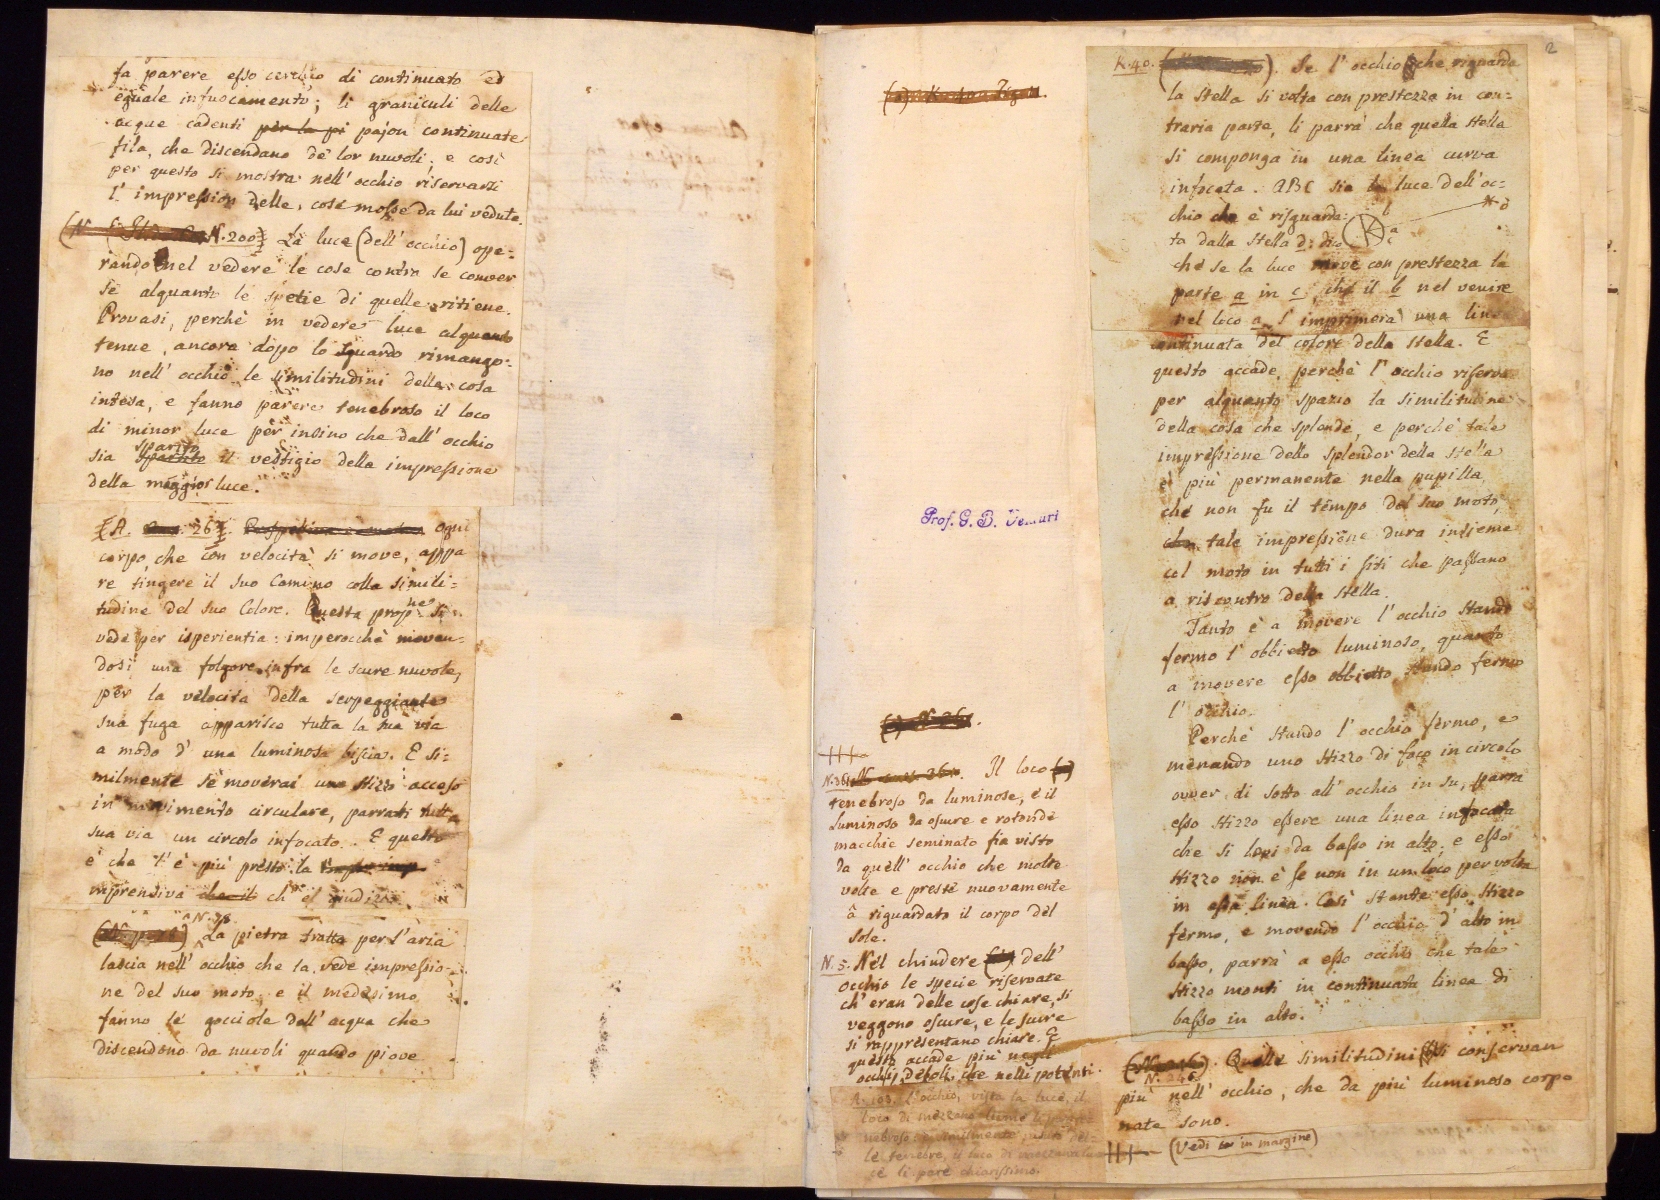 fa parere esso cerchio di continuato ed
eguale infuocamento; li graniculi delle
acque cadenti per la pi pajon continuate
fila, che discendano de' lor nuvoli; e così
per questo si mostra nell' occhio riservarsi
l' impression delle cose mosse da lui vedute.
N. 200 La luce (dell' occhio) ope=
rando nel vedere le cose contra se conver
se alquanto le spetie di quelle ritiene.
Provasi, perchè in vedere luce alquanto
tenue, ancora dopo lo sguardo rimango=
no nell' occhio le similitudini della cosa
intesa, e fanno parere tenebroso il loco
di minor luce per insino che dall' occhio
sia sparito il vestigio della impressione
della maggior luce.
[A. 26]. Prospettiva e Ogni
corpo, che con velocità si move, appa
re tingere il suo Camino colla simili=
tudine del suo Colore. Questa propne si
vede per isperientia: imperocchè moven=
dosi una folgore infra le scure nuvole,
per la velocità della serpeggiante
sua fuga apparisce tutta la sua via
a modo d' una luminosa biscia. E si=
milmente se moverai uno stizzo acceso
in movimento circulare, parrati tutta
sua via un circolo infocato. E questo
è che l' è più presti la
mprensiva che il ch' el judizio.
N. 78
La pietra tratta per l'aria
lascia nell' occhio che la vede impressio=
ne del suo moto, e il medesimo
fanno le gocciole dell' acqua che
discendono da nuvoli quando piove
Prof. G. B. Venturi
N. 361. Il loco
tenebroso da luminose, e il
luminoso da oscure e rotonde
macchie seminato fia visto
da quell' occhio che molte
volte e preste nuovamente
à riguardato il corpo del
sole.
N. 5. Nel chiudere dell'
occhio le specie riservate
ch' eran delle cose chiare, si
veggono oscure, e le scure
si rappresentano chiare. E
questo accade più negli
occhi deboli che nelli potenti.
L'occhio, vista la luce, il
loco di mezzano lume
nebroso: e similmente
le tenebre, il loco di mezzano lu
ce li pare chiarissimo.
2
K. 40. Se l' occhio che riguarda
la stella si volta con prestezza in con=
traria parte, li parrà che quella stella
si componga in una linea curva
infocata. ABC sia la luce dell' oc=
chio che è risguarda=
ta dalla stella d: dico
b
d
a
c
che se la luce move con prestezza la
parte a in c, che il b nel venire
nel loco a s' imprimerà una linea
continuata del colore della stella. E
questo accade, perchè l' occhio riserva
per alquanto spazio la similitudine
della cosa che splende, e perchè tale
impressione dello splendor della stella
è più permanente nella pupilla,
che non fu il tempo del suo moto,
che tale impressione dura insieme
col moto in tutti i siti che passano
a riscontro della stella.
Tanto è a movere l' occhio stando
fermo l' obbietto luminoso, quanto
a movere esso obbietto stando fermo
l' occhio.
Perchè stando l' occhio fermo, e
menando uno stizzo di foco in circolo
over di sotto all' occhio in su, parrà
esso stizzo essere una linea infocata
che si levi da basso in alto, e esso
stizzo non è se non in un loco per volta
in essa linea. Così stante esso stizzo
fermo, e movendo l' occhio d' alto in
basso, parrà a esso occhio che tale
stizzo monti in continuata linea di
basso in alto.
Quelle similitudini si conservan
N. 246
più nell' occhio, che da più luminoso corpo
nate sono.
(Vedi in margine)